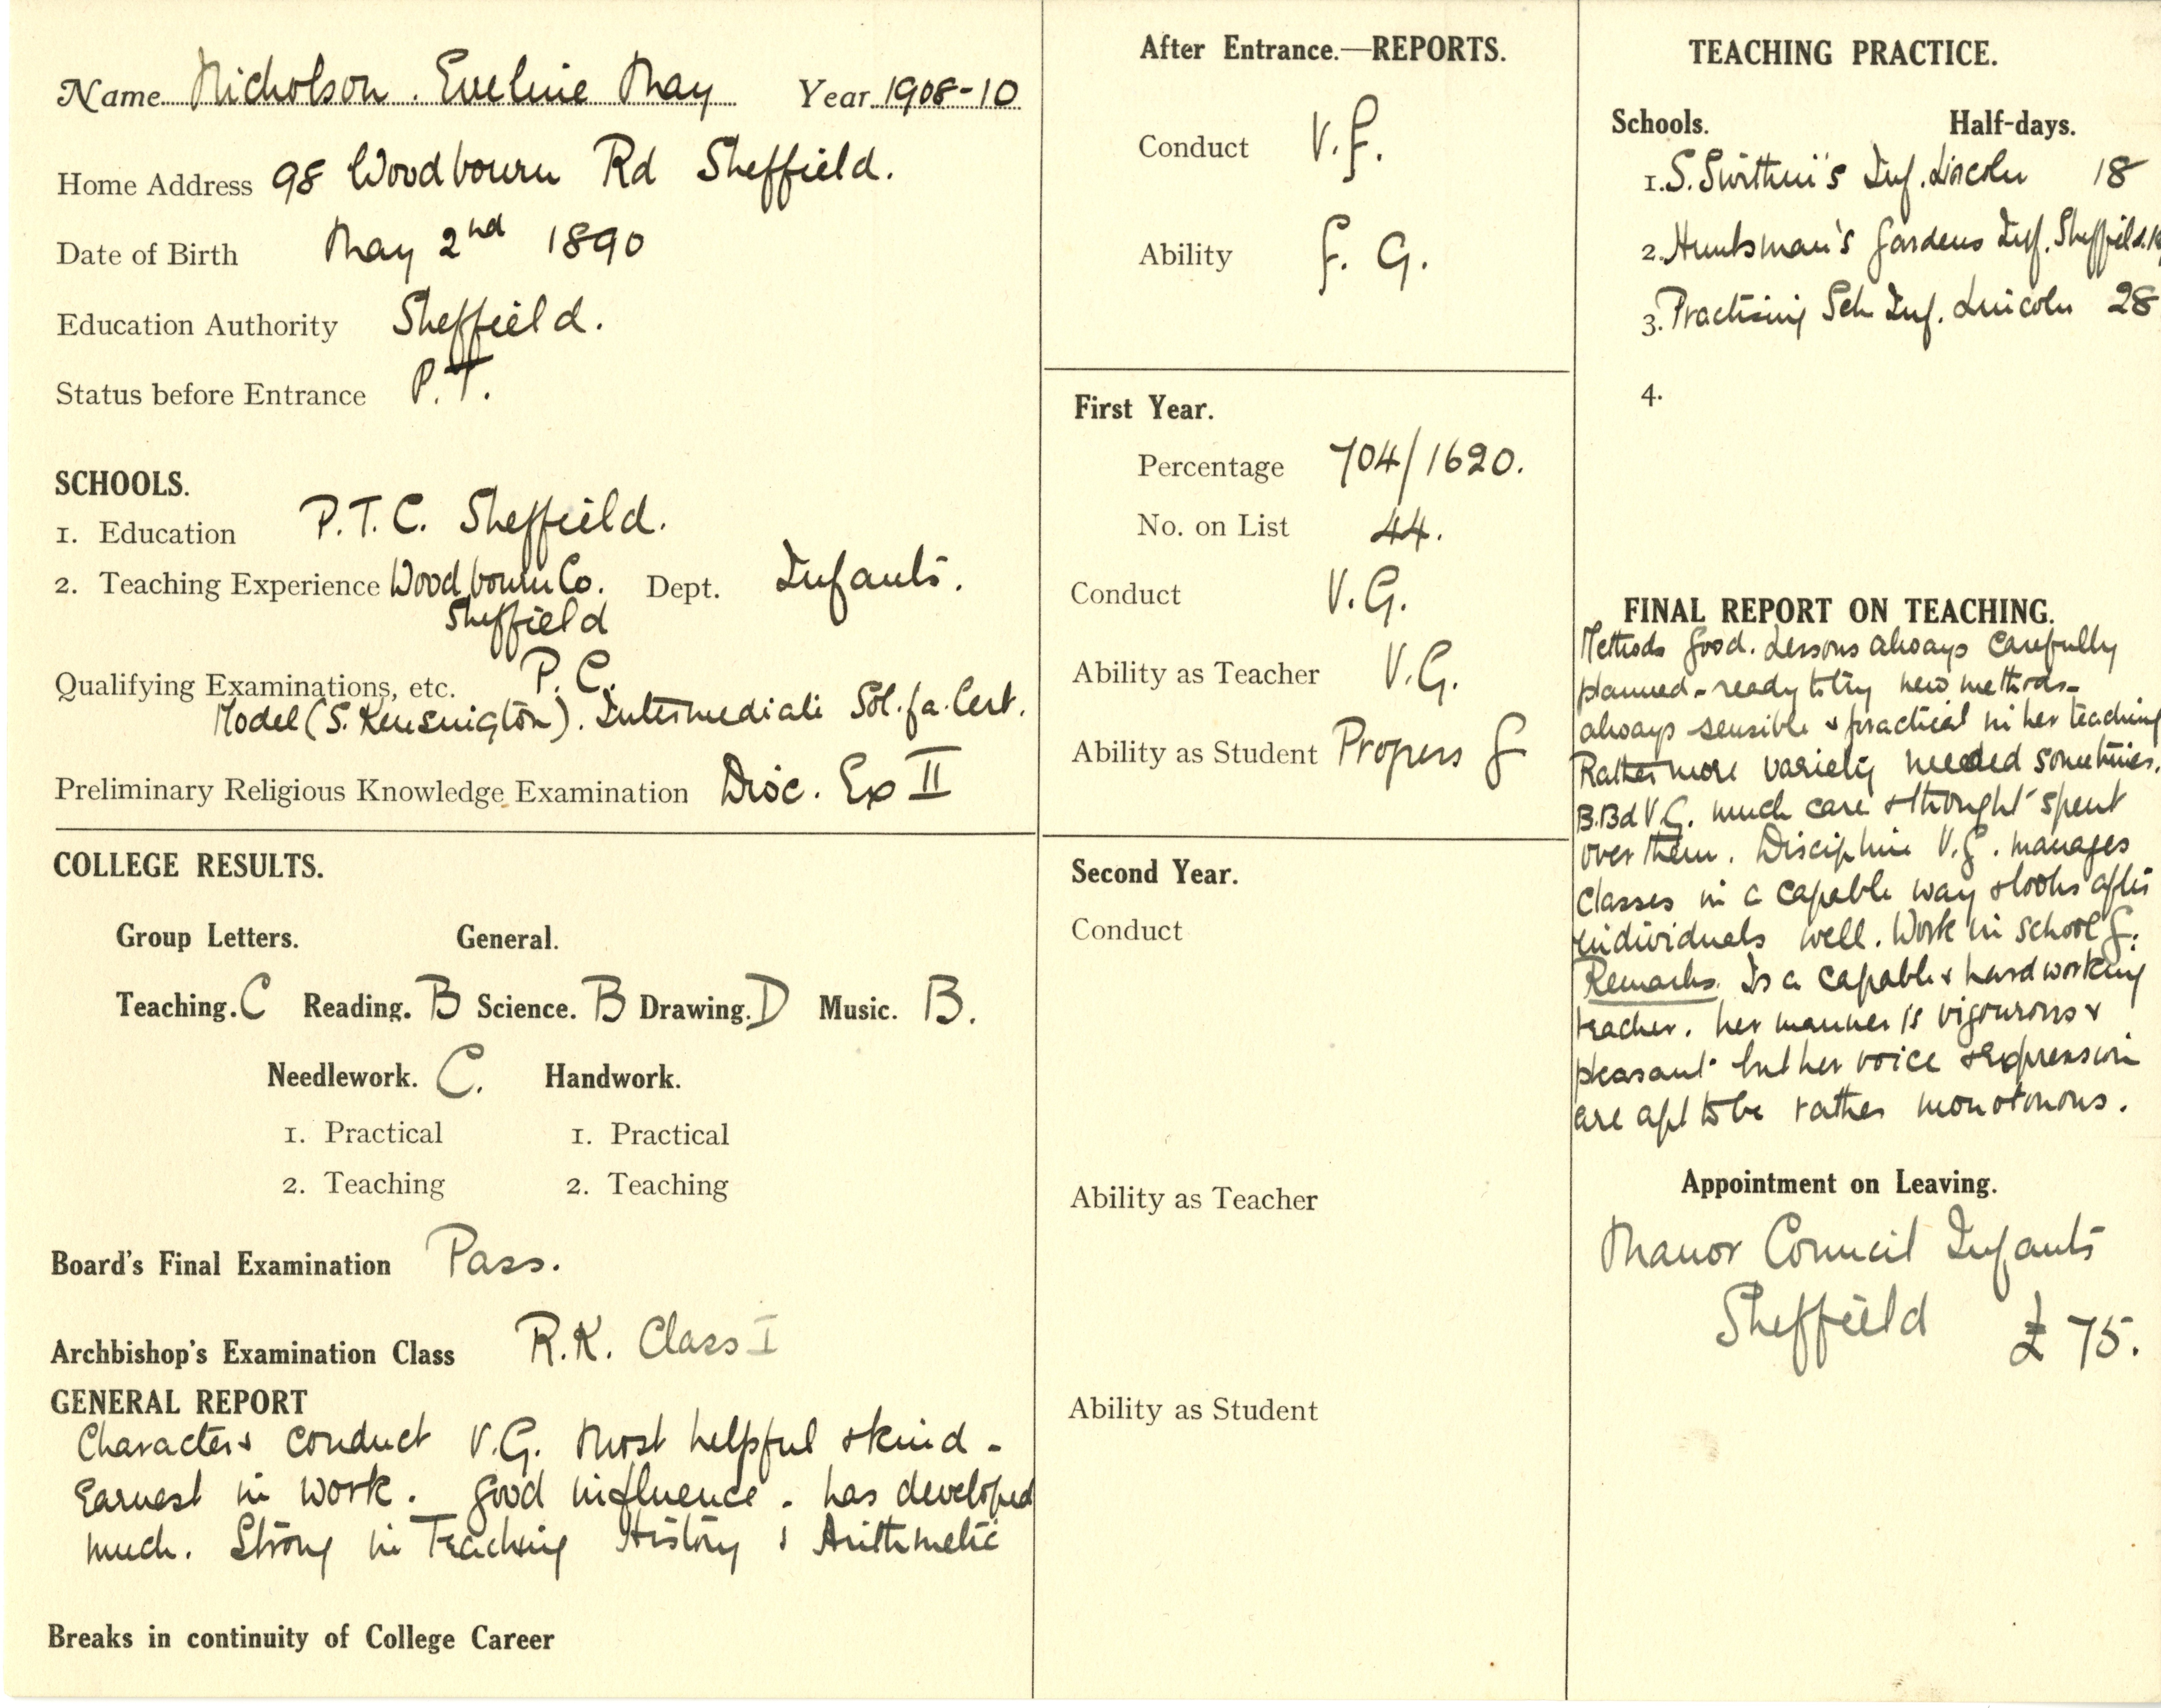 Name Nicholson. Eveline May Year 1908-10
Home Address 98 Woodbourn Rd Sheffield.
Date of Birth May 2nd 1890
Education Authority Sheffield.
Status before Entrance P.T.
SCHOOLS.
1. Education P.T.C. Sheffield.
2. Teaching Experience Woodbourn Co. Dept. Infants.
Sheffield
Qualifying Examinations, etc. P.C.
Model (S. Kensington). Intermediate Sol.fa.Cert.
Preliminary Religious Knowledge Examination Dioc. Ex II
COLLEGE RESULTS.
Group Letters. General.
Teaching. C Reading. B Science. B Drawing. D Music. B.
Needlework. C. Handwork.
1. Practical 1. Practical
2. Teaching 2. Teaching
Board's Final Examination Pass.
Archbishop's Examination Class R.K. Class I
GENERAL REPORT
Character & conduct V.G. Most helpful & kind -
Earnest in work. Good influence. has developed
much. Strong in Teaching History & Arithmetic
Breaks in continuity of College Career
After Entrance.—REPORTS.
Conduct V.F.
Ability F. G.
First Year.
Percentage 704/1620.
No. on List 44.
Conduct V.G.
Ability as Teacher V.G.
Ability as Student Progress G
Second Year.
Conduct
Ability as Teacher
Ability as Student
TEACHING PRACTICE.
Schools. Half-days.
1. S. Swithin's Inf. Lincoln 18
2. Huntsman's Gardens Inf. Sheffield.
3. Practising Sch Inf. Lincoln 28
4.
FINAL REPORT ON TEACHING.
Methods Good. Lessons always carefully
planned - ready to try new methods -
always sensible & practical in her teaching
Rather more variety needed sometimes.
B.Bd V.G. much care & thought spent
over them. Discipline V.G. manages
classes in a capable way & looks after
individuals well. Work in school G.
Remarks. Is a capable & hardworking
teacher. her manner is vigourous &
pleasant but her voice & expression
are apt to be rather monotonous.
Appointment on Leaving.
Manor Council Infants
Sheffield £75.